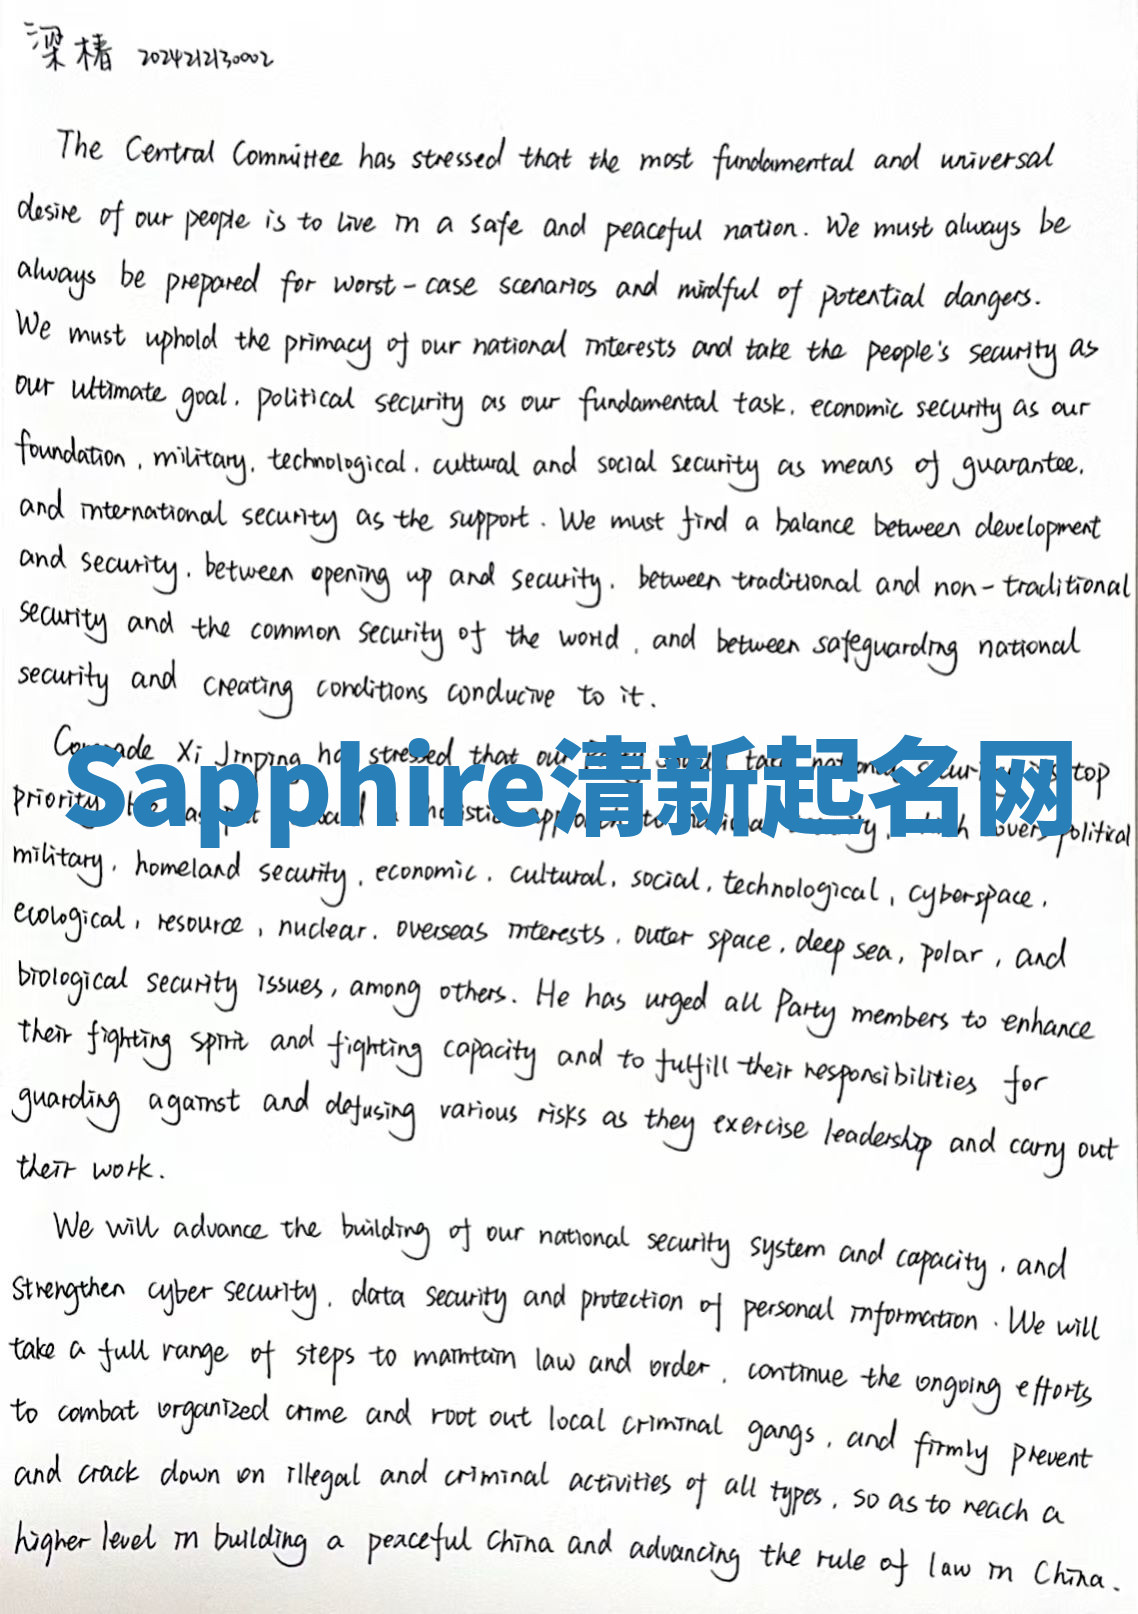 梁椿 2024212130002
The Central Committee has stressed that the most fundamental and universal
desire of our people is to live in a safe and peaceful nation. We must always be
always be prepared for worst-case scenarios and mindful of potential dangers.
We must uphold the primacy of our national interests and take the people's security as
our ultimate goal, political security as our fundamental task, economic security as our
foundation, military, technological, cultural and social security as means of guarantee,
and international security as the support. We must find a balance between development
and security, between opening up and security, between traditional and non-traditional
security and the common security of the world, and between safeguarding national
security and creating conditions conducive to it.
Xi Jinping has stressed that our top
Sapphire清新起名网
priority political
military, homeland security, economic, cultural, social, technological, cyberspace,
ecological, resource, nuclear, overseas interests, outer space, deep sea, polar, and
biological security issues, among others. He has urged all Party members to enhance
their fighting spirit and fighting capacity and to fulfill their responsibilities for
guarding against and defusing various risks as they exercise leadership and carry out
their work.
We will advance the building of our national security system and capacity, and
strengthen cyber security, data security and protection of personal information. We will
take a full range of steps to maintain law and order, continue the ongoing efforts
to combat organized crime and root out local criminal gangs, and firmly prevent
and crack down on illegal and criminal activities of all types, so as to reach a
higher level in building a peaceful China and advancing the rule of law in China.